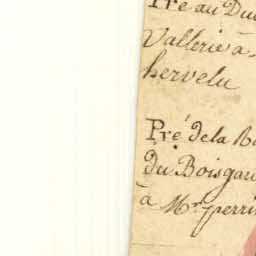 Pré au Du
Vallerie à
hervelu
Pré de la
du Boisgau
à Mr perri